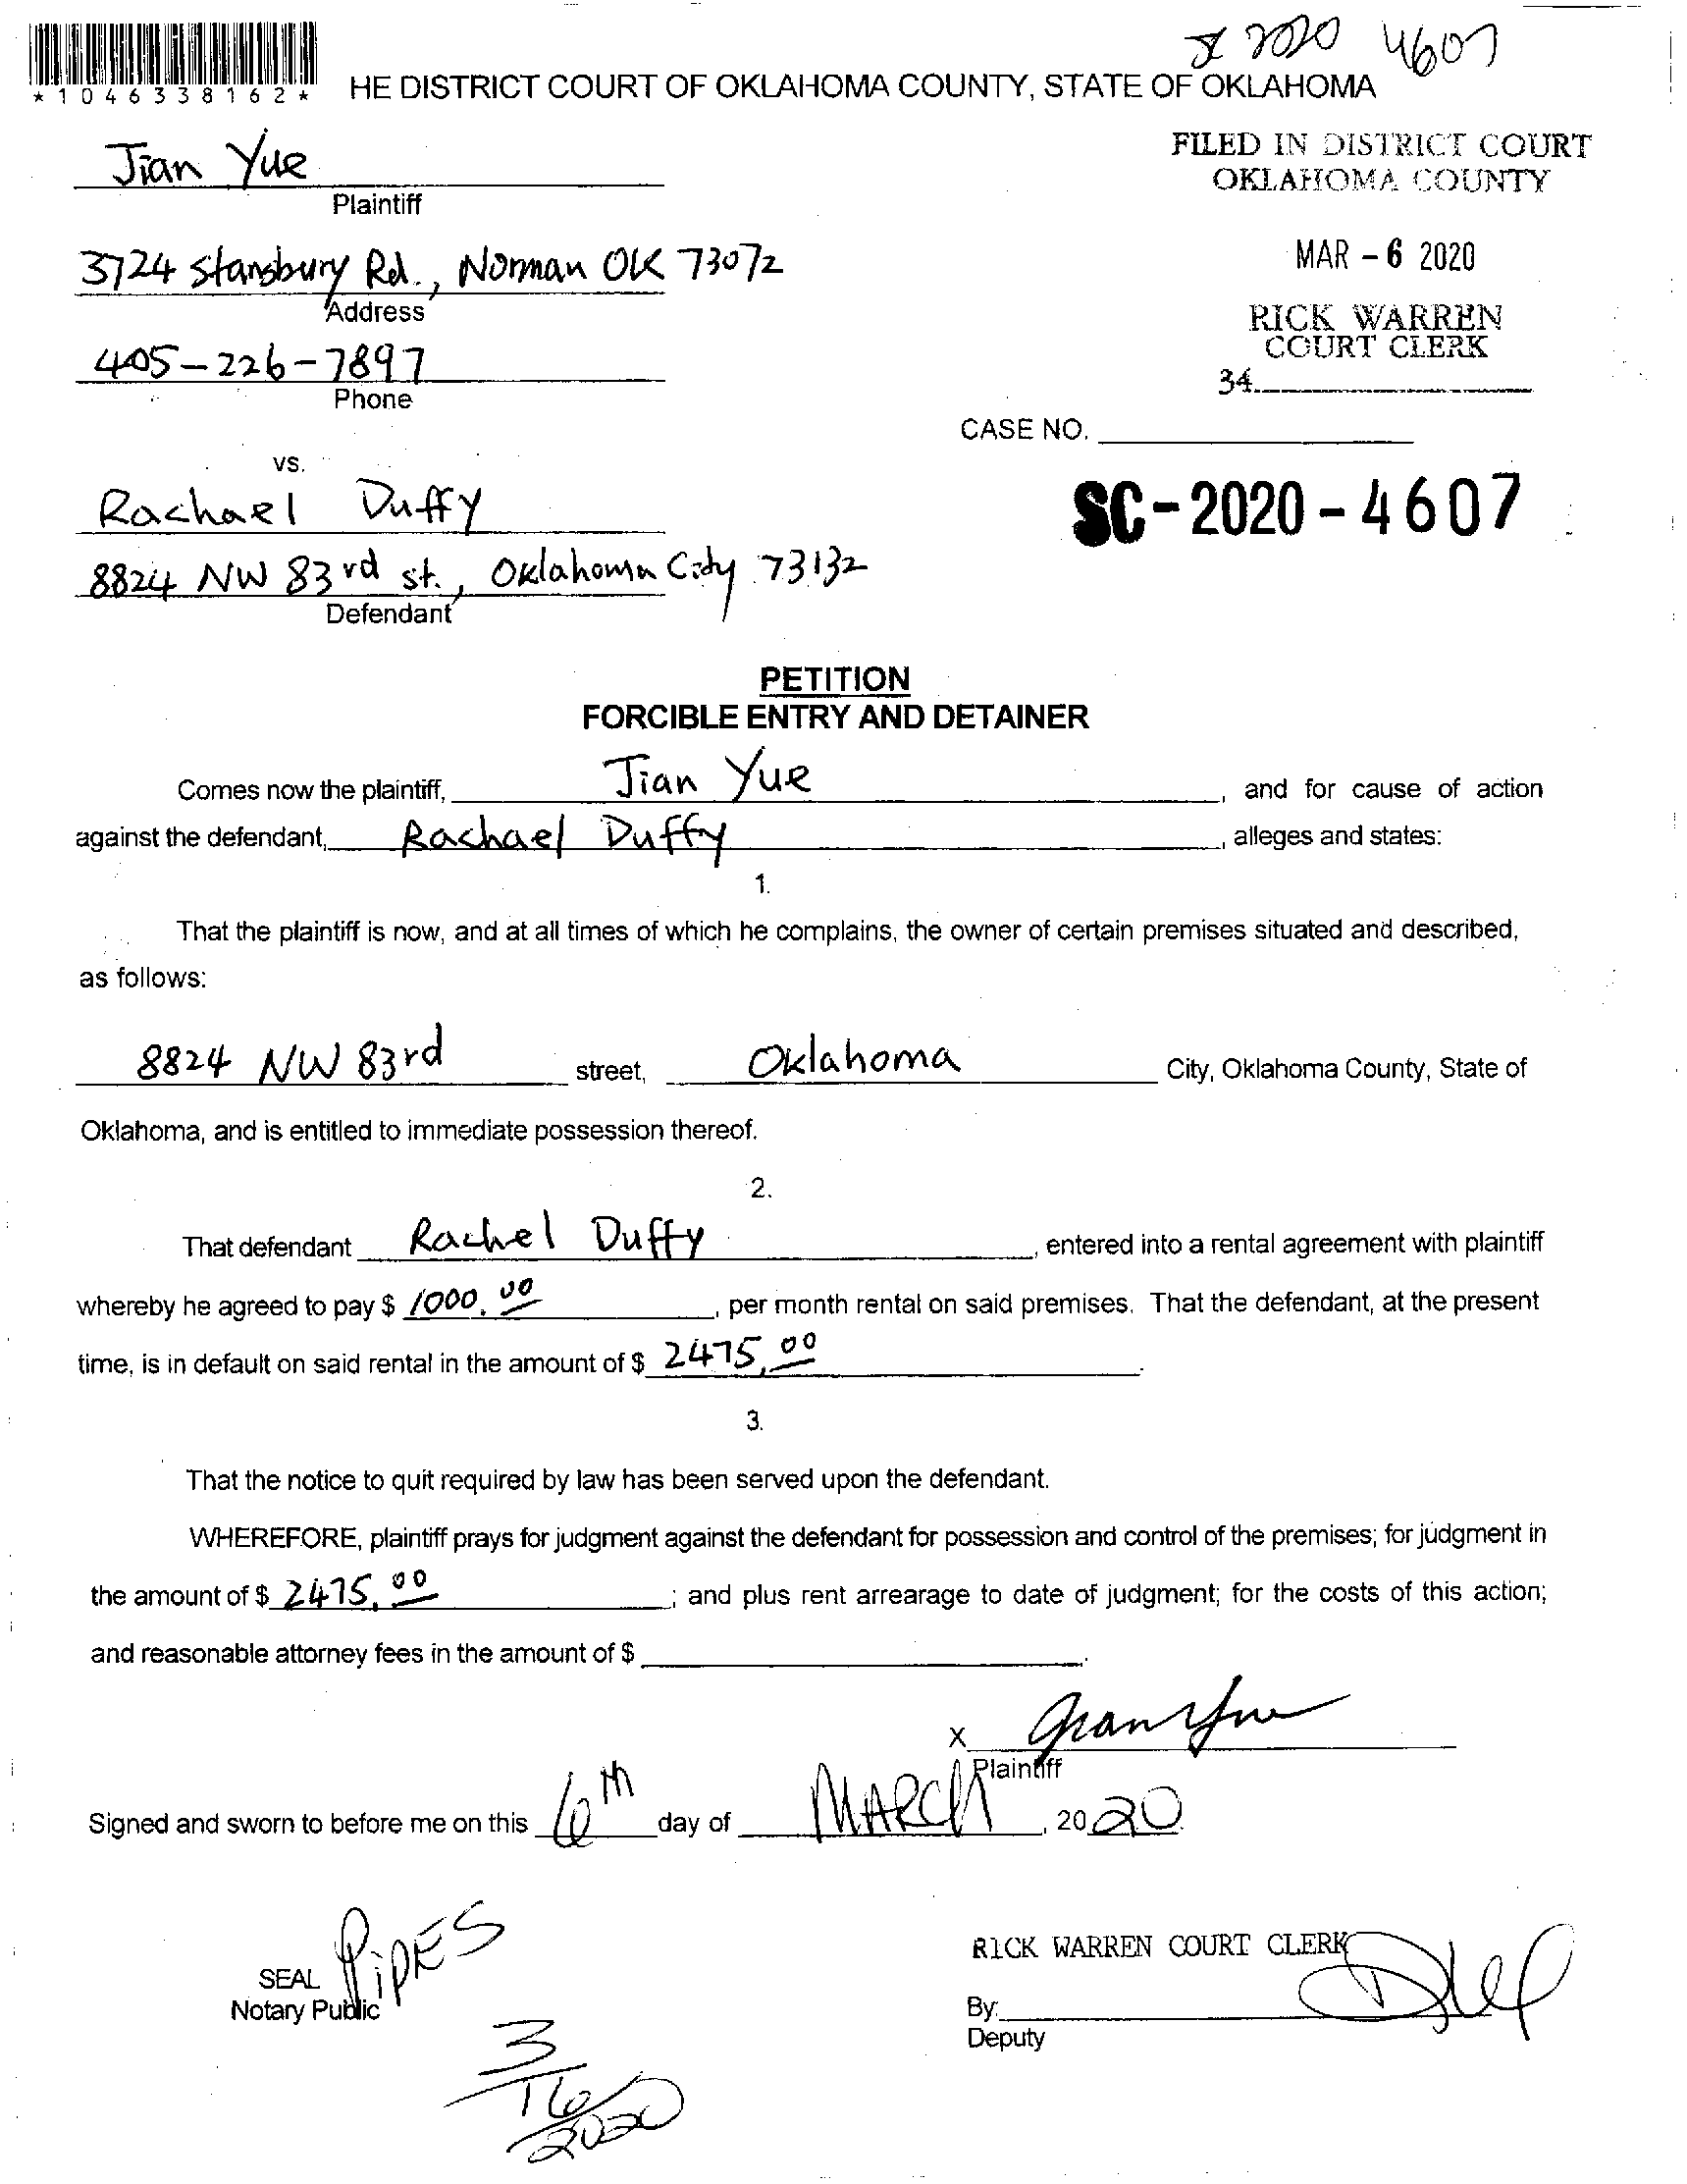 SC 2020 4607
*1046338162*
HE DISTRICT COURT OF OKLAHOMA COUNTY, STATE OF OKLAHOMA
Jian Yue
Plaintiff
FILED IN DISTRICT COURT
OKLAHOMA COUNTY
3724 Stansbury Rd., Norman OK 73072
Address
MAR - 6 2020
405-226-7897
Phone
RICK WARREN
COURT CLERK
34
CASE NO.
vs.
SC-2020-4607
Rachael Duffy
8824 NW 83rd st., Oklahoma City 73132
Defendant
PETITION
FORCIBLE ENTRY AND DETAINER
Comes now the plaintiff, Jian Yue, and for cause of action
against the defendant, Rachael Duffy, alleges and states:
1.
That the plaintiff is now, and at all times of which he complains, the owner of certain premises situated and described,
as follows:
8824 NW 83rd street, Oklahoma City, Oklahoma County, State of
Oklahoma, and is entitled to immediate possession thereof.
2.
That defendant Rachel Duffy, entered into a rental agreement with plaintiff
whereby he agreed to pay $ 1000.00, per month rental on said premises. That the defendant, at the present
time, is in default on said rental in the amount of $ 2475.00.
3.
That the notice to quit required by law has been served upon the defendant.
WHEREFORE, plaintiff prays for judgment against the defendant for possession and control of the premises; for judgment in
the amount of $ 2475.00; and plus rent arrearage to date of judgment; for the costs of this action;
and reasonable attorney fees in the amount of $ .
X
Plaintiff
Signed and sworn to before me on this 6th day of MARCH, 2020
PiPES
SEAL
Notary Public
RICK WARREN COURT CLERK
By:
Deputy
3/16/2020